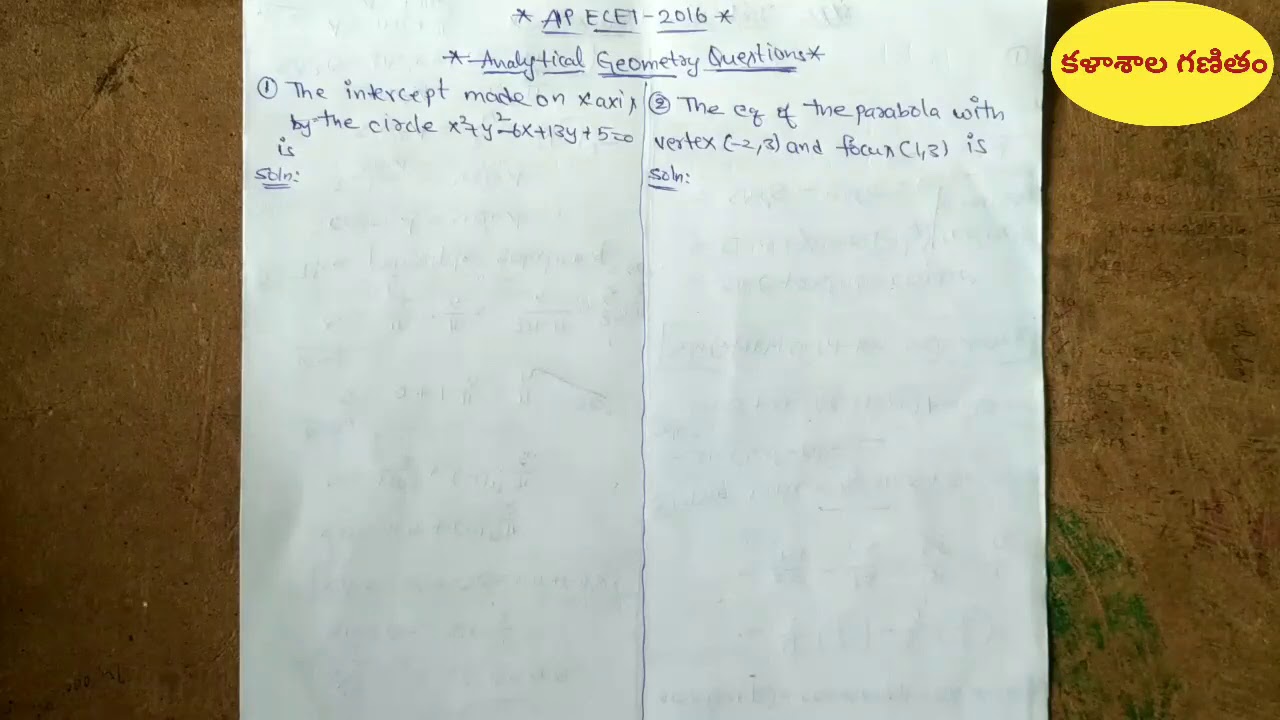 * AP ECET-2016 *
* Analytical Geometry Questions *
కళాశాల గణితం
① The intercept made on x axis
by the circle x²+y²-6x+13y+5=0
is
Soln:
② The eq of the parabola with
vertex (-2,3) and focus (1,3) is
Soln: